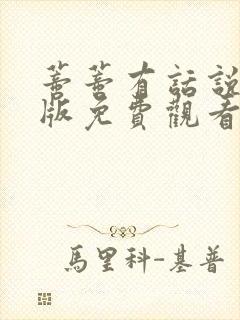 蕾蕾有話說
版免費觀看
馬里科-基普